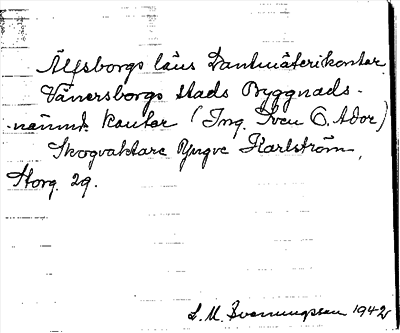 Älfsborgs läns Lantmäterikontor.
Vänersborgs stads Byggnads-
nämnds kontor (Ing. Sven O. Ador)
Skogvaktare Yngve Karlström,
Storg. 29.
L. M. Svenungsson 1942